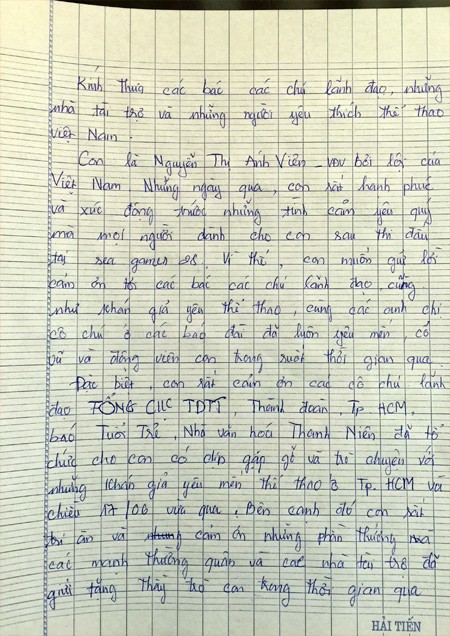 Kính thưa các bác các chú lãnh đạo, những
nhà tài trợ và những người yêu thích thể thao
Việt Nam.
Con là Nguyễn Thị Ánh Viên _ VĐV bơi lội của
Việt Nam. Những ngày qua, con rất hạnh phúc
và xúc động trước những tình cảm yêu quý
mà mọi người dành cho con sau thi đấu
tại sea games 28. Vì thế, con muốn gửi lời
cảm ơn tới các bác các chú lãnh đạo cũng
như khán giả yêu thể thao, cùng các anh chị
cô chú ở các báo đài đã luôn yêu mến, cổ
vũ và động viên con trong suốt thời gian qua.
Đặc biệt, con rất cảm ơn các cô chú lãnh
đạo TỔNG CỤC TDTT, Thành đoàn Tp HCM,
báo Tuổi Trẻ, Nhà văn hoá Thanh Niên đã tổ
chức cho con có dịp gặp gỡ và trò chuyện với
những khán giả yêu mến thể thao ở Tp. HCM và
chiều 17/06 vừa qua. Bên cạnh đó con rất
tri ân và cảm ơn những phần thưởng mà
các mạnh thường quân và các nhà tài trợ đã
gửi tặng thầy trò con trong thời gian qua
HẢI TIẾN